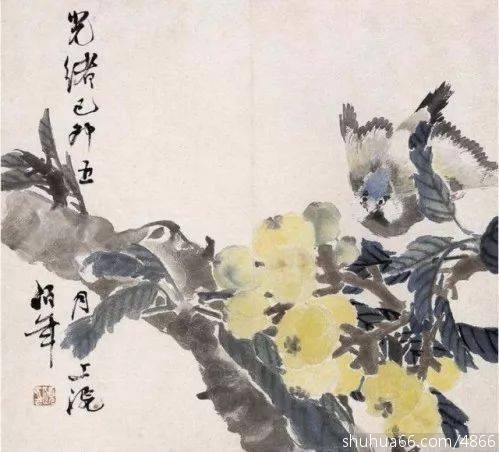 光緒己卯五
月上浣
伯年
shuhua66.com/4866